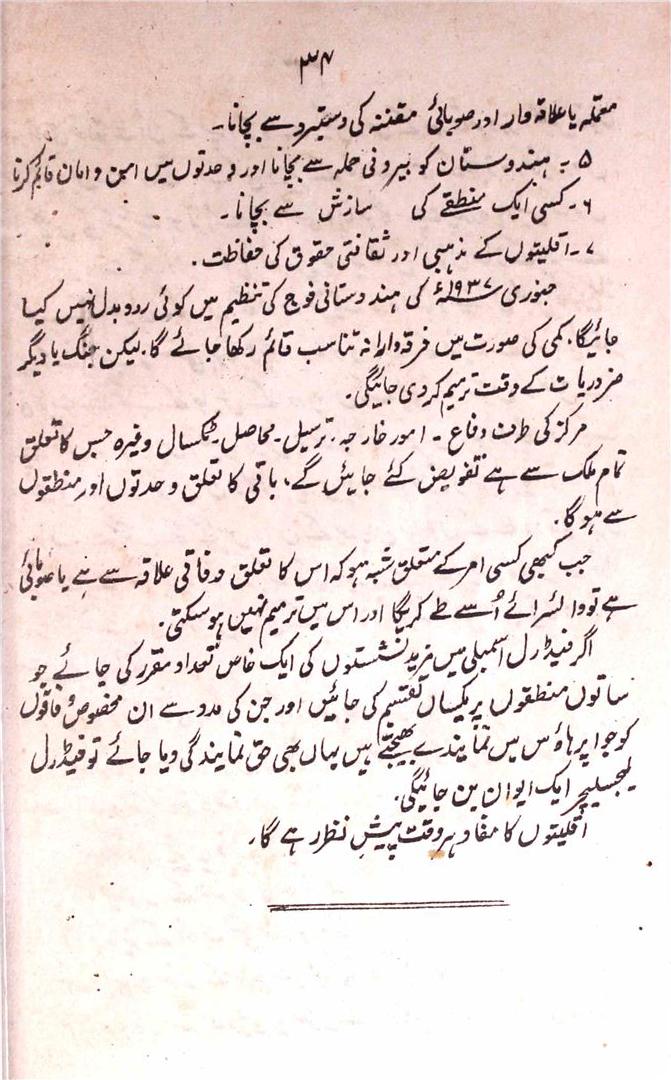 ۳۴
معتملہ یا علاقہ وار اور صوبائی مقننہ کی دستبرد سے بچانا۔
۵۔ ہندوستان کو بیرونی حملہ سے بچانا اور وحدتوں میں امن و امان قائم کرنا
۶۔ کسی ایک منطقے کی سازش سے بچانا۔
۷۔ اقلیتوں کے مذہبی اور ثقافتی حقوق کی حفاظت۔
جنوری ۱۹۳۷ء کی ہندوستانی فوج کی تنظیم میں کوئی ردوبدل نہیں کیا
جائیگا۔ کمی کی صورت میں فرقہ وارانہ تناسب قائم رکھا جائے گا۔ لیکن جنگ یا دیگر
ضروریات کے وقت ترمیم کر دی جائیگی۔
مرکز کی طرف دفاع ۔ امور خارجہ ۔ ترسیل ۔ محاصل ۔ ٹکسال وغیرہ جس کا تعلق
تمام ملک سے ہے تفویض کئے جائیں گے، باقی کا تعلق وحدتوں اور منطقوں
سے ہو گا۔
جب کبھی کسی امر کے متعلق شبہ ہو کہ اس کا تعلق وفاقی علاقہ سے ہے یا صوبائی
ہے تو وائسرائے اُسے طے کریگا اور اس میں ترمیم نہیں ہو سکتی۔
اگر فیڈرل اسمبلی میں مزید نشستوں کی ایک خاص تعداد مقرر کی جائے جو
ساتوں منطقوں پر یکساں تقسیم کی جائیں اور جن کی مدد سے ان مخصوص وفاقوں
کو جو اپر ہاؤس میں نمایندے بھیجتے ہیں یہاں بھی حق نمایندگی دیا جائے تو فیڈرل
لیجسلیچر ایک ایوان بن جائیگی۔
اقلیتوں کا مفاد ہر وقت پیشِ نظر رہے گا۔